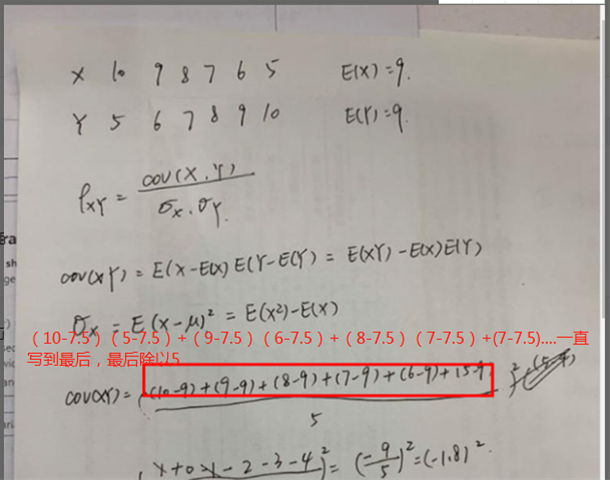 X 10 9 8 7 6 5 E(X)=9.
Y 5 6 7 8 9 10 E(Y)=9.
ρxy = cov(X,Y) / σx·σY.
cov(XY) = E(X-E(X)) E(Y-E(Y)) = E(XY)-E(X)E(Y)
σx = E(X-μ)² = E(X²)-E(X)
(10-7.5)(5-7.5)+(9-7.5)(6-7.5)+(8-7.5)(7-7.5)+(7-7.5)....一直
写到最后，最后除以5
cov(XY) = (10-9)+(9-9)+(8-9)+(7-9)+(6-9)+(5-9) / 5 )²
-2-3-4)² = (-9/5)² = (-1.8)².